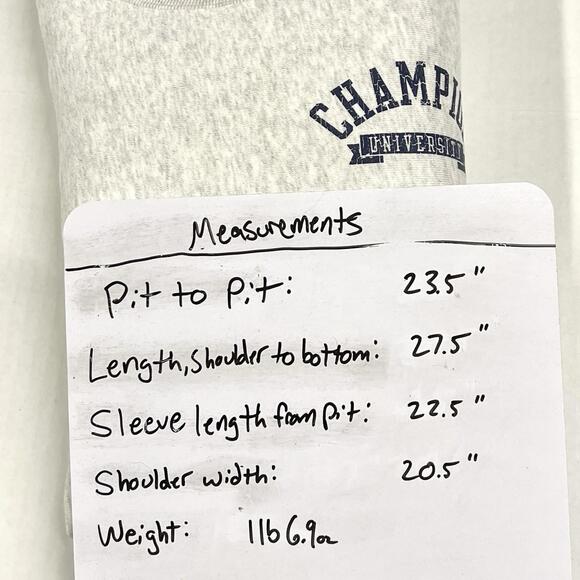 CHAMPI
UNIVERSIT
Measurements
Pit to Pit: 23.5"
Length, Shoulder to bottom: 27.5"
Sleeve length from pit: 22.5"
Shoulder width: 20.5"
Weight: 1lb 6.9oz